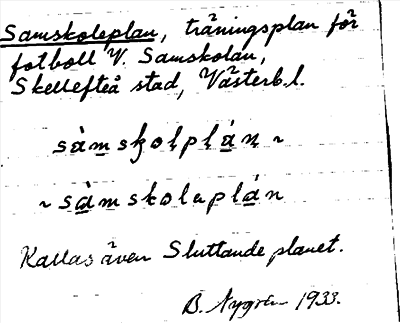 Samskoleplan, träningsplan för
fotboll V. Samskolan,
Skellefteå stad, Västerb.l.
sàmskolplán ~
~ sàmskoleplán
Kallas även Sluttande planet.
B. Nygren 1933.